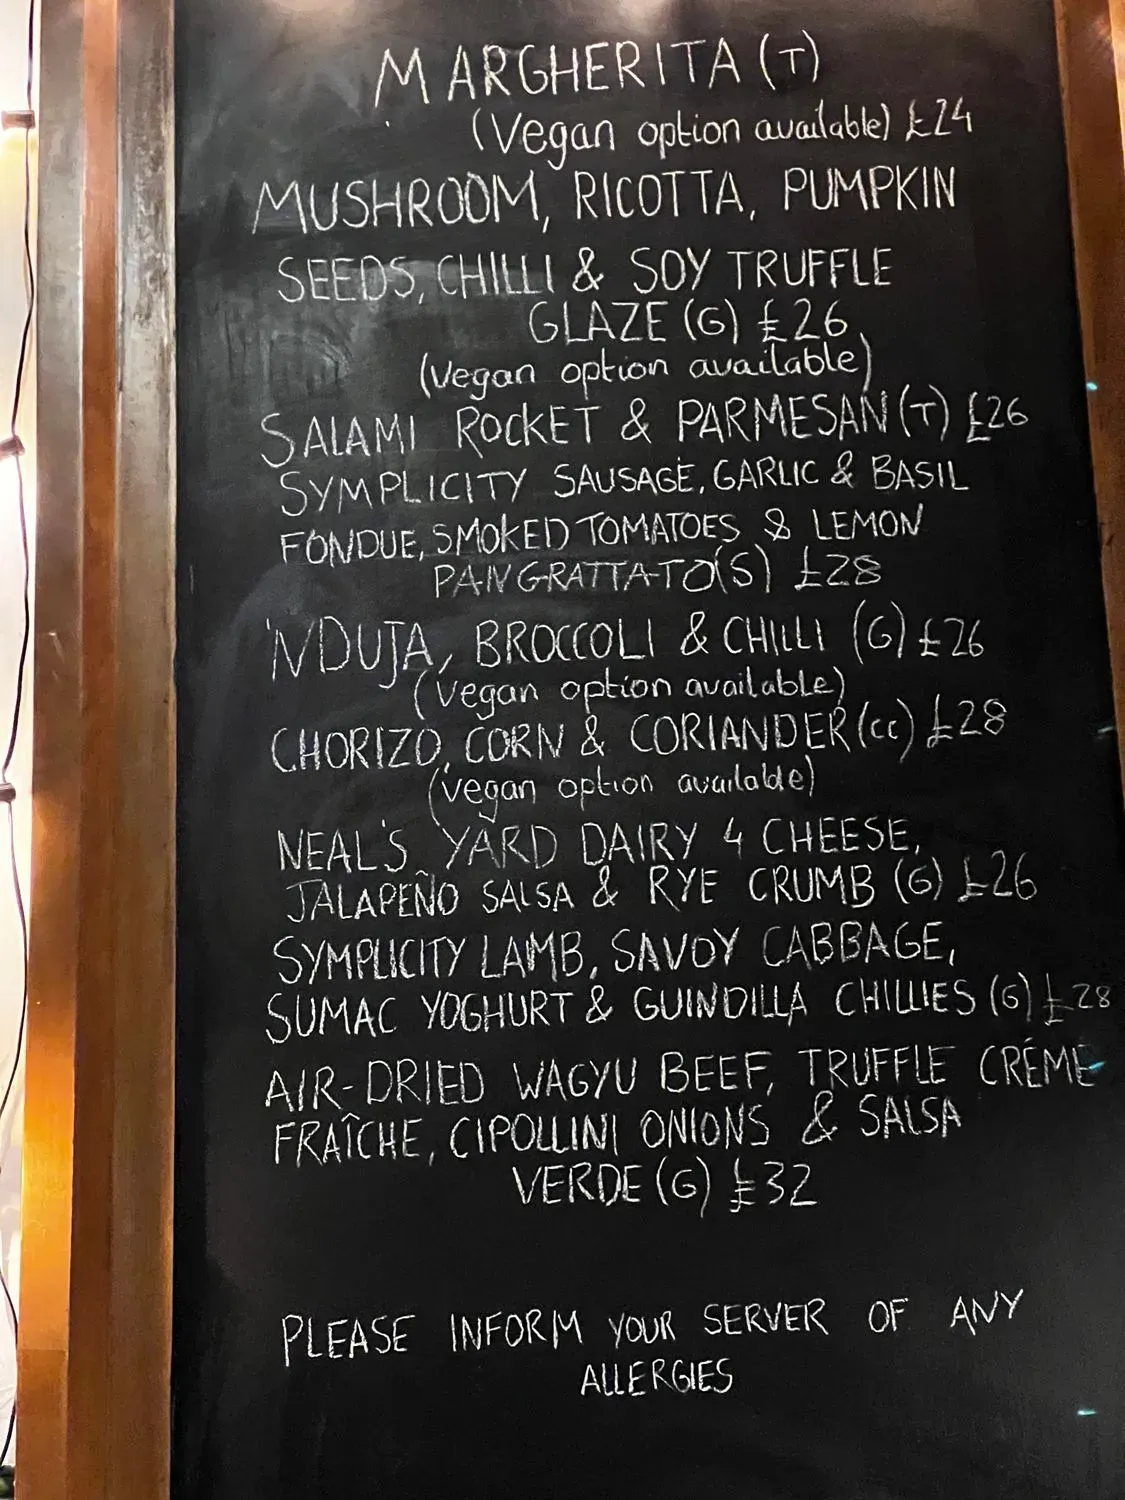 MARGHERITA (T)
(Vegan option available) £24
MUSHROOM, RICOTTA, PUMPKIN
SEEDS, CHILLI & SOY TRUFFLE
GLAZE (G) £26
(Vegan option available)
SALAMI ROCKET & PARMESAN (T) £26
SYMPLICITY SAUSAGE, GARLIC & BASIL
FONDUE, SMOKED TOMATOES & LEMON
PANGRATTATO (S) £28
'NDUJA, BROCCOLI & CHILLI (G) £26
(Vegan option available)
CHORIZO, CORN & CORIANDER (cc) £28
(Vegan option available)
NEAL'S YARD DAIRY 4 CHEESE,
JALAPEÑO SALSA & RYE CRUMB (G) £26
SYMPLICITY LAMB, SAVOY CABBAGE,
SUMAC YOGHURT & GUINDILLA CHILLIES (G) £28
AIR-DRIED WAGYU BEEF, TRUFFLE CRÉME
FRAÎCHE, CIPOLLINI ONIONS & SALSA
VERDE (G) £32
PLEASE INFORM YOUR SERVER OF ANY
ALLERGIES